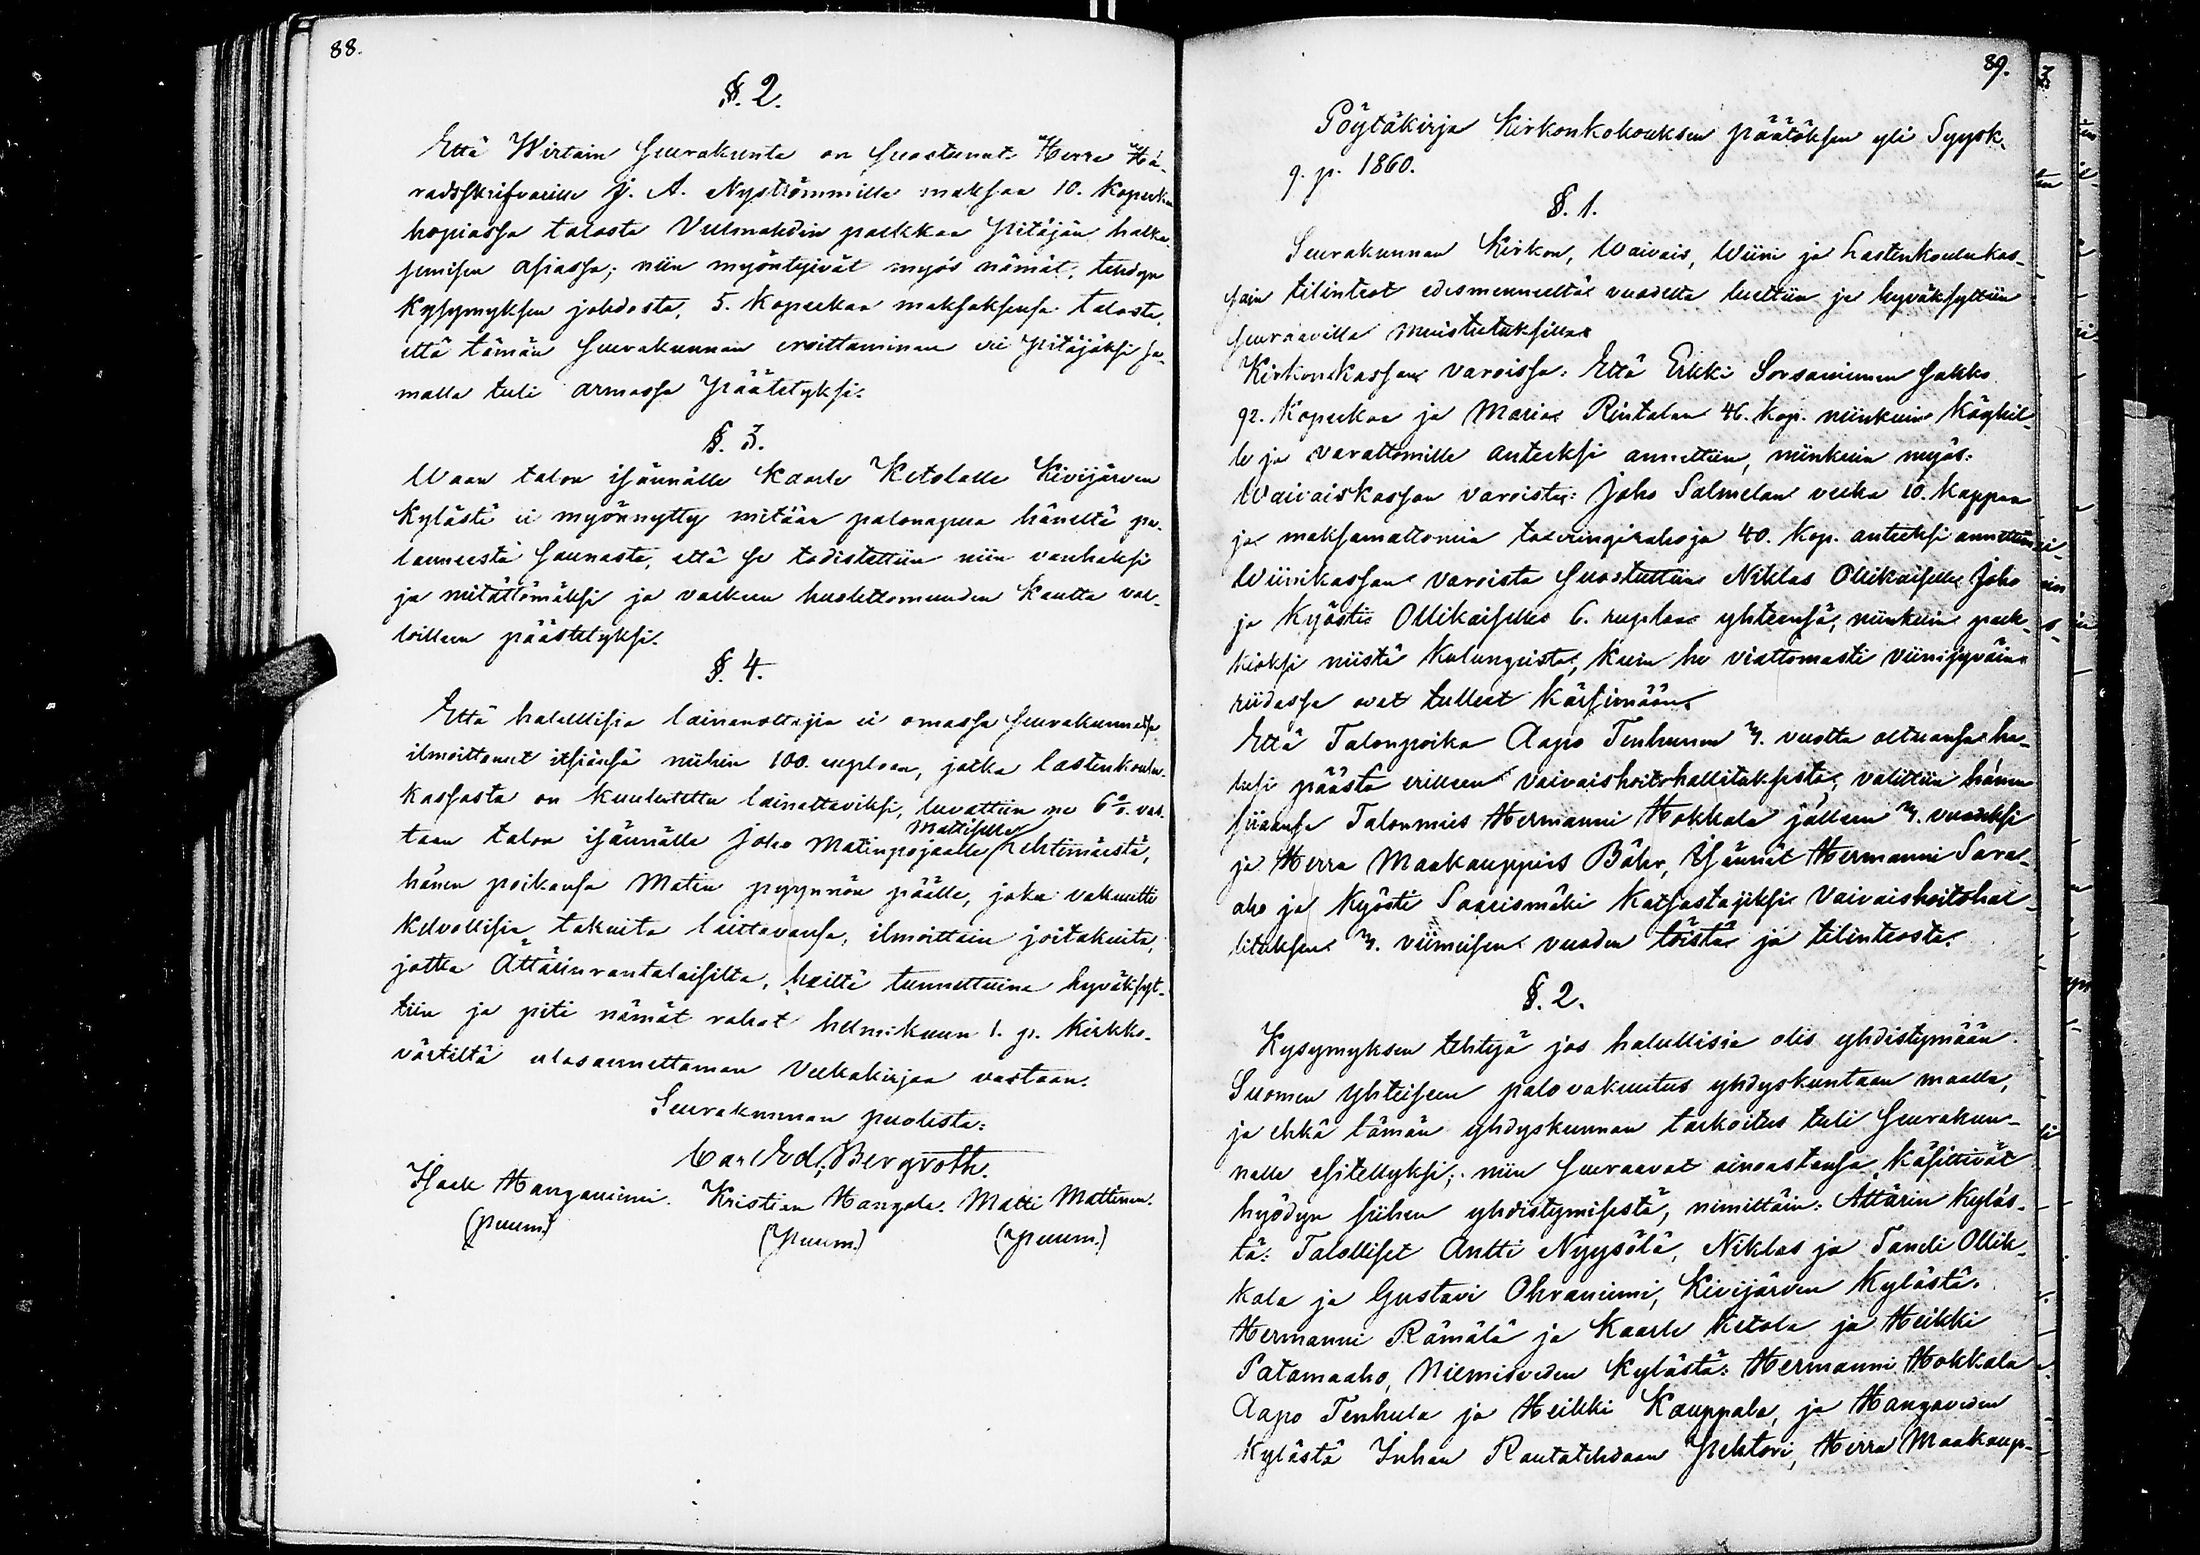 88.
§. 2.
Että Wirtain Seurakunta on suostunut Herra Hä-
radsskrifvarille J. A. Nyströmmille maksaa 10. Kopeekkaa
hopiassa talosta Vulmahdin palkkaa Pitäjän halka-
semisen asiassa; niin myöntyivät myös nämät, tehdyn
Kysymyksen johdosta, 5. Kopeekaa maksaksensa talosta,
että tämän Seurakunnan eroittaminen eri Pitäjäksi sa-
malla tuli armossa Päätetyksi.
§. 3.
Waan talon isännälle Kaarle Ketolalle Kivijärven
Kylästä ei myönnytty mitään palonapua häneltä pa-
laneesta Saunasta, että se todistettiin niin vanhaksi
ja mitättömäksi ja valkean huolettomuuden kautta val-
loilleen päästetyksi.
§. 4.
Että halullisia lainanottajia ei omassa Seurakunnassa
ilmoittanut itsiänsä niihin 100. ruplaan, jotka lastenkoulu-
kassasta on kuulutettu lainattaviksi, luvattiin ne 6% vas-
taan talon isännälle Joho Matinpojalle Mattiselle Lehtimäestä,
hänen poikansa Matin pyynnön päälle, joka vakuutti
Kelvollisia takuita laittavansa, ilmoittain joitakuita,
jotka Ättärinrantalaisilta, heiltä tunnettuina hyväksyt-
tiin ja piti nämät rahat helmikuun 1. p. Kirkko-
värtiltä ulosannettaman Velkakirjaa vastaan.
Seurakunnan puolesta:
Carl Ed. Bergroth.
Isak Hanganiemi. Kristian Hangola. Matti Mattinen.
(puum.) (Puum.) (Puum.)
89.
Pöytäkirja Kirkonkokouksen päätöksen yli Syysk.
9. p. 1860.
§. 1.
Seurakunnan Kirkon, Waivais, Wiini ja Lastenkoulukas-
sain tilinteot edesmenneeltä vuodelta luettiin ja hyväksyttiin
seuraavilla muistutuksilla:
Kirkonkassan varoissa: Että Erkki Sorsaniemen sakko
92. Kopeekaa ja Maria Rintalan 46. kop. niinkuin Köyhil-
le ja varattomille anteeksi annettiin, niinkuin myös:
Waivaiskassan varoista: Joho Salmelan velka 10. Kappaa
ja maksamattomia taxeringirahoja 40. Kop. anteeksi annettiin
Wiinikassan varoista suostuttiin Niklas Ollikaiselle, Joho
ja Kyösti Ollikaiselle 6. ruplaa yhteensä, niinkuin palk-
kioksi niistä Kulungeista, kuin he viattomasti viinisyvään
riidassa ovat tulleet Kärsimään.
Että Talonpoika Aapo Tenhunen 3/4. vuotta oltuansa ha-
lusi päästä erilleen vaivaishoitohallituksesta, valittiin hänen
siaansa Talonmies Hermanni Hokkala jälleen 3/4. vuodeksi
ja Herra Maakauppias Bähr, Isännät Hermanni Sara-
aho ja Kyösti Saarismäki Katsastajiksi Vaivaishoitohal-
lituksen 3/4. viimeisen vuoden töistä ja tilinteosta.
§. 2.
Kysymyksen tehtyä jos halullisia olis yhdistymään
Suomen Yhteiseen palovakuutus yhdyskuntaan maalla,
ja ehkä tämän yhdyskunnan tarkoitus tuli Seurakun-
nalle esitellyksi; niin seuraavat ainoastansa käsittivät
hyödyn siihen yhdistymisestä, nimittäin: Ättärin Kyläs-
tä: Talolliset Antti Nyysölä, Niklas ja Taneli Ollik-
kala ja Gustavi Ohraniemi, Kivijärven Kylästä:
Hermanni Rämälä ja Kaarle Ketola ja Heikki
Patamaaho, Niemisveden Kylästä: Hermanni Hokkala
Aapo Tenhula ja Heikki Kauppala, ja Hangoveden
Kylästä Inhan Rautatehdaan Pehtori, Herra Maakaup-